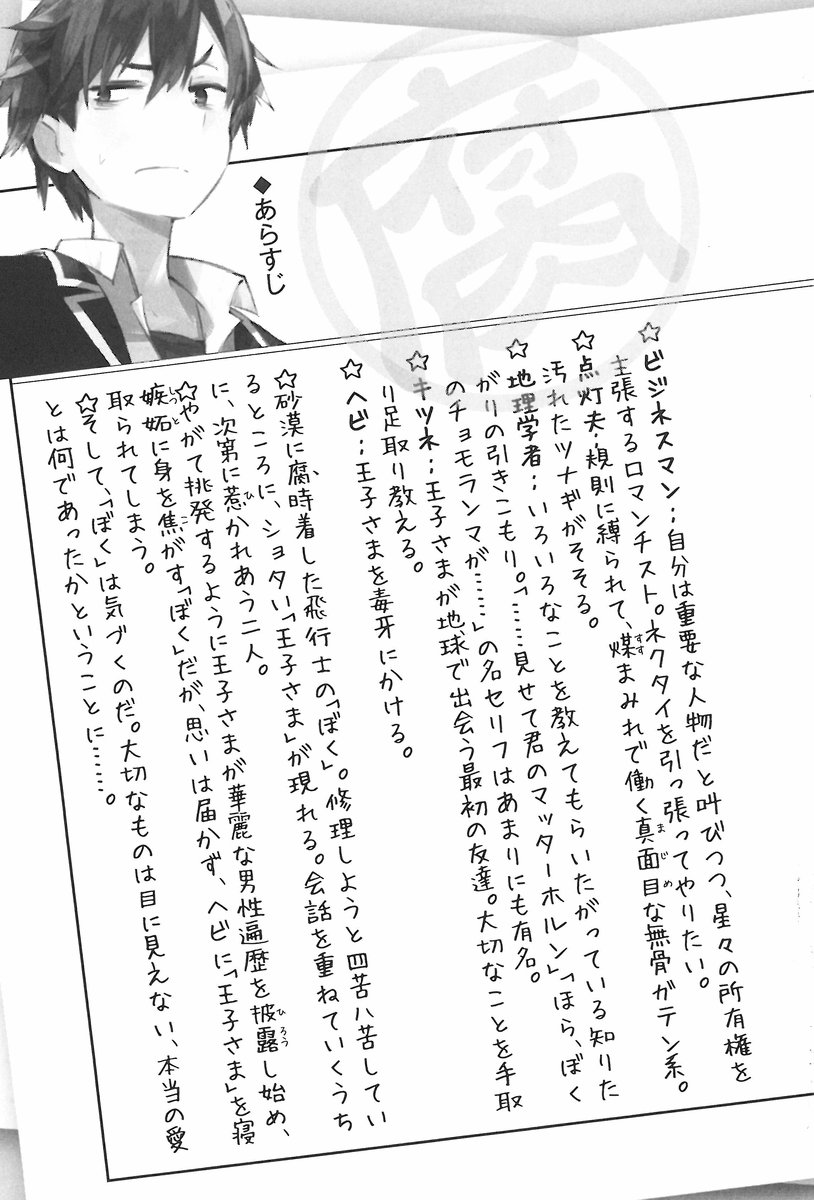 腐
◆あらすじ
☆ビジネスマン…自分は重要な人物だと叫びつつ、星々の所有権を
主張するロマンチスト。ネクタイを引っ張ってやりたい。
☆点灯夫…規則に縛られて、煤まみれで働く真面目な無骨ガテン系。
汚れたツナギがそそる。
☆地理学者…いろいろなことを教えてもらいたがっている知りた
がりの引きこもり。「……見せて君のマッターホルン」「ほら、ぼく
のチョモランマが……」の名セリフはあまりにも有名。
☆キツネ…王子さまが地球で出会う最初の友達。大切なことを手取
り足取り教える。
☆ヘビ…王子さまを毒牙にかける。
☆砂漠に腐時着した飛行士の「ぼく」。修理しようと四苦八苦してい
るところに、ショタい「王子さま」が現れる。会話を重ねていくうち
に、次第に惹かれあう二人。
☆やがて挑発するように王子さまが華麗な男性遍歴を披露し始め、
嫉妬に身を焦がす「ぼく」だが、思いは届かず、ヘビに「王子さま」を寝
取られてしまう。
☆そして、「ぼく」は気づくのだ。大切なものは目に見えない、本当の愛
とは何であったかということに……。